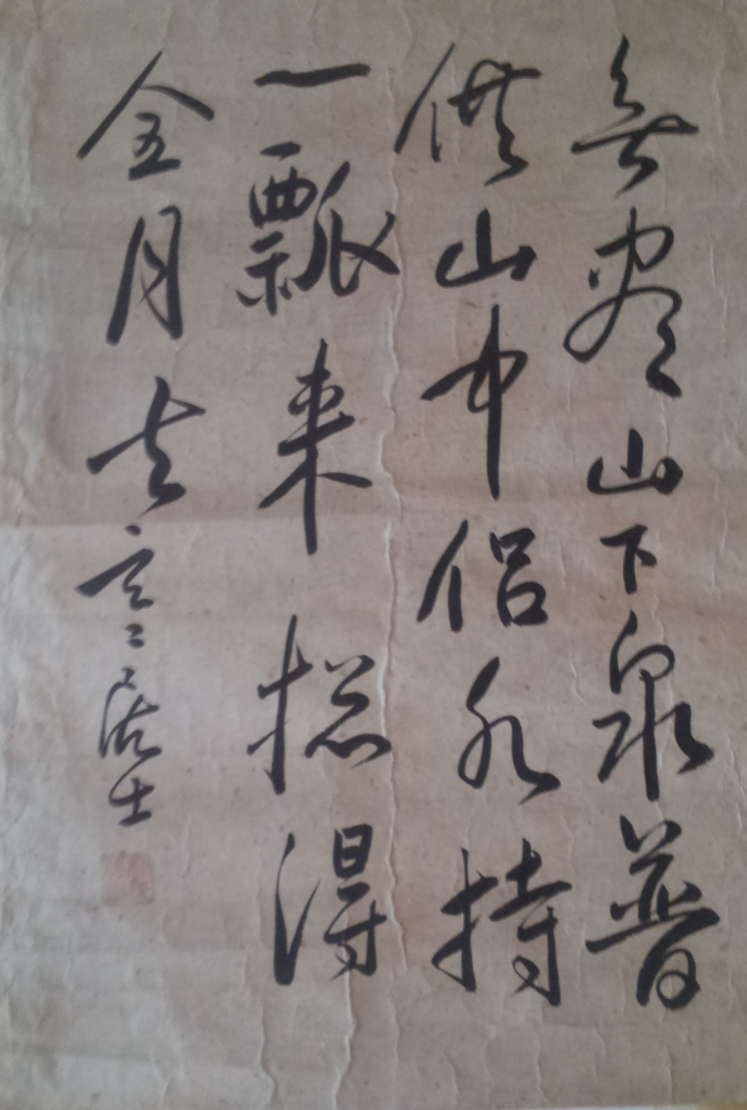 無尽山下泉普
供山中侶各持
一瓢来捴得
全月去 居士